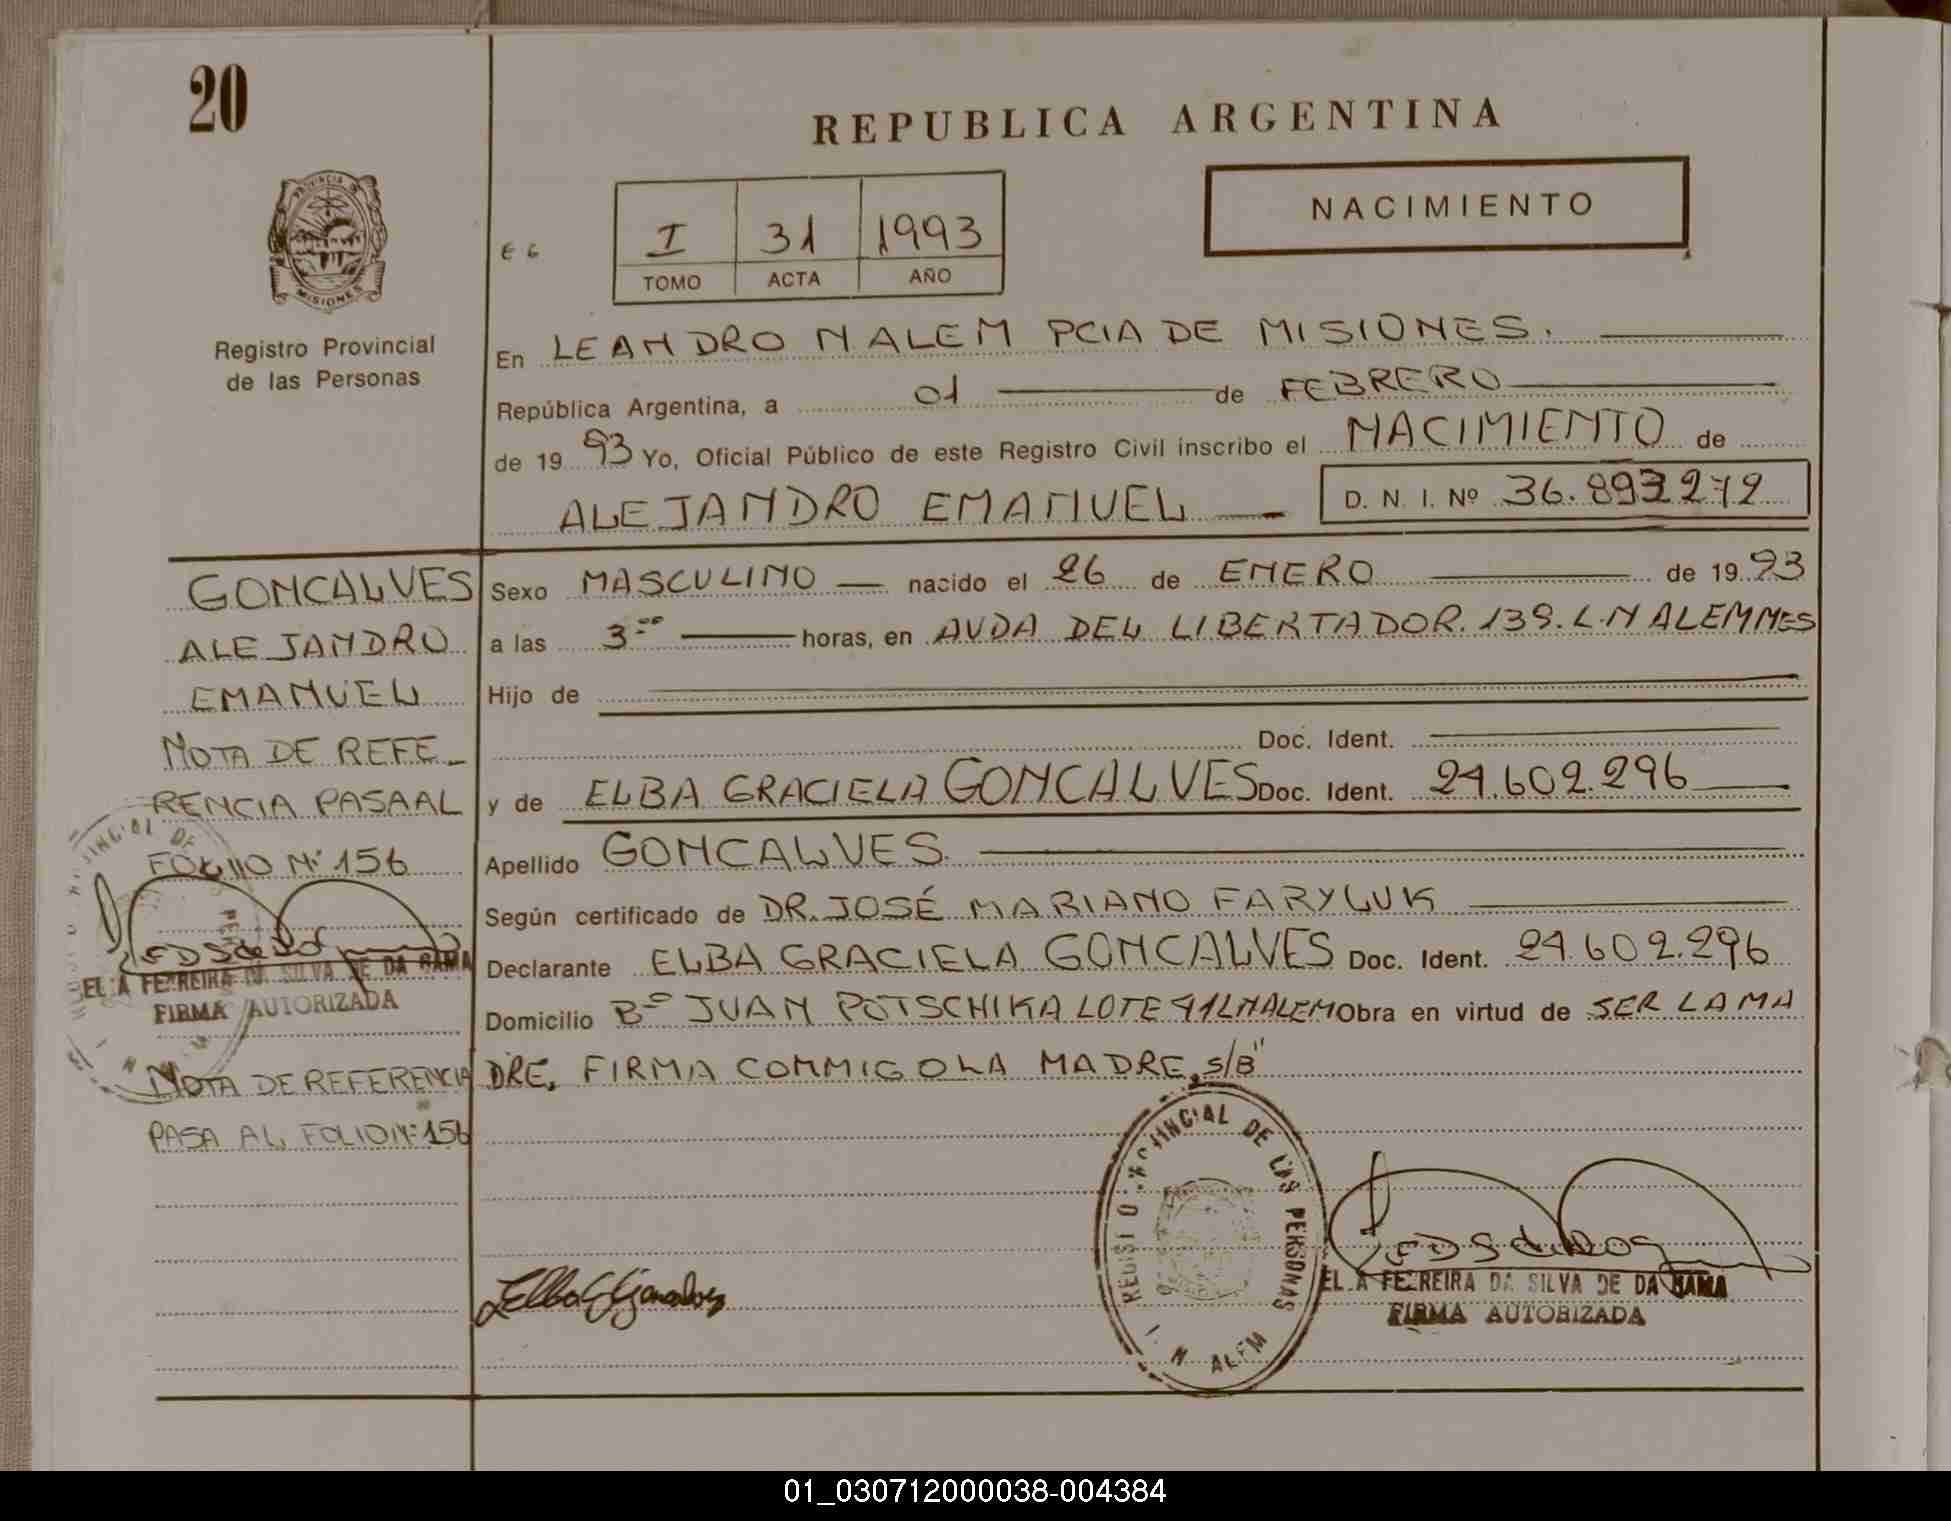 20
REPUBLICA ARGENTINA
PROVINCIA DE
MISIONES
Registro Provincial
de las Personas
E 6
I 31 1993
TOMO ACTA AÑO
NACIMIENTO
En LEANDRO N ALEM PCIA DE MISIONES.
República Argentina, a 01 de FEBRERO
de 1993 Yo, Oficial Público de este Registro Civil inscribo el NACIMIENTO de
ALEJANDRO EMANUEL D. N. I. Nº 36.893272
GONCALVES
ALEJANDRO
EMANUEL
NOTA DE REFE_
RENCIA PASA AL
FOLIO Nº 156
EL A FERREIRA DA SILVA DE DA GAMA
FIRMA AUTORIZADA
NOTA DE REFERENCIA
PASA AL FOLIO Nº 156
Sexo MASCULINO nacido el 26 de ENERO de 1993
a las 3=00 horas, en AVDA DEL LIBERTADOR. 139. L.N ALEM MES
Hijo de
Doc. Ident.
y de ELBA GRACIELA GONCALVES Doc. Ident. 24.602.296
Apellido GONCALVES.
Según certificado de DR. JOSÉ MARIANO FARYLUK
Declarante ELBA GRACIELA GONCALVES Doc. Ident. 24.602.296
Domicilio Bº JUAN POTSCHIKA LOTE 41 L N ALEM Obra en virtud de SER LA MA
DRE, FIRMA CONMIGO LA MADRE, S/B"
REGISTRO PROVINCIAL DE LAS PERSONAS
L. N. ALEM
Elba G Goncalves
EL A FERREIRA DA SILVA DE DA GAMA
FIRMA AUTORIZADA
01_030712000038-004384